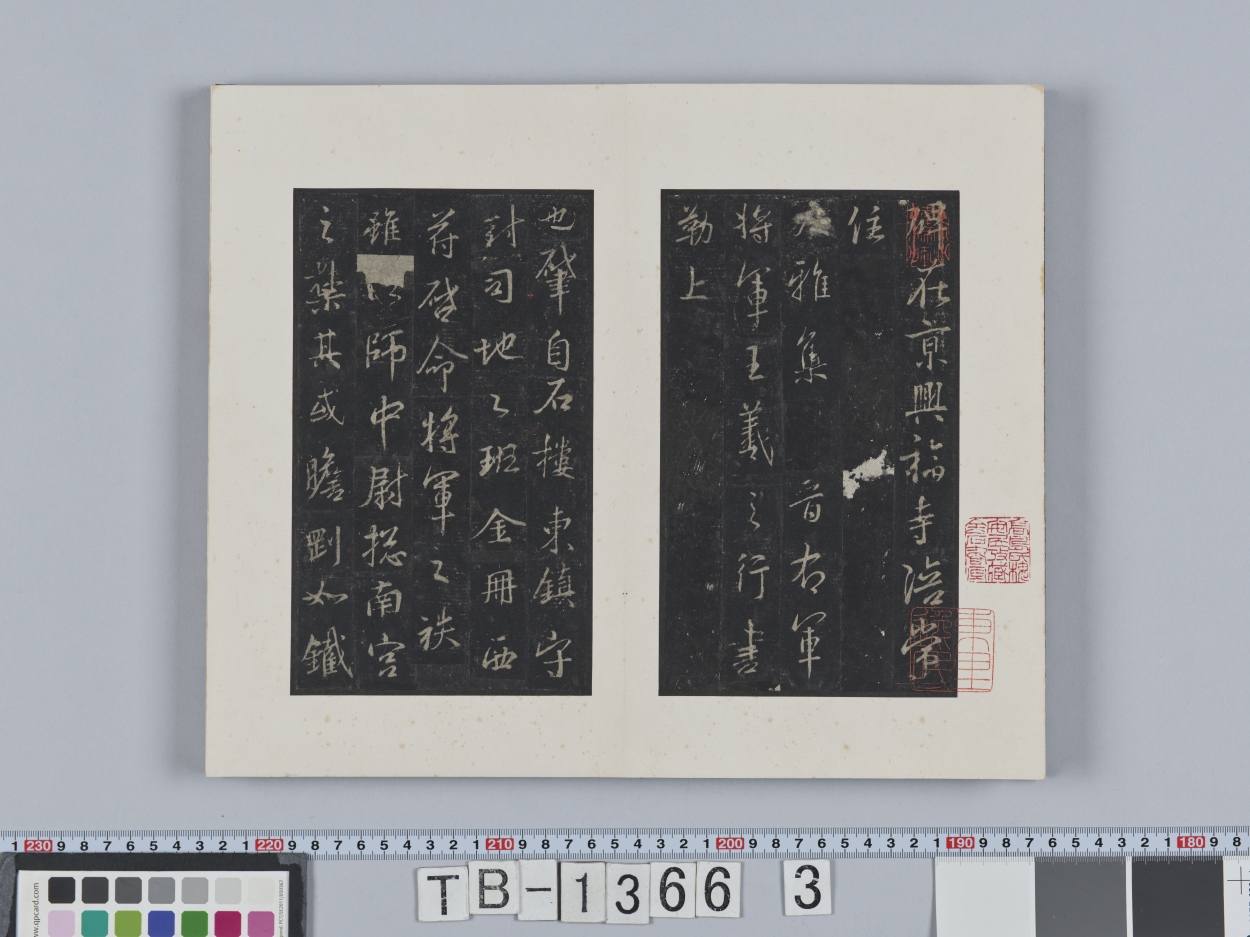 碑在京興福寺陪常
住
大雅集晋右軍
將軍王羲之行書
勒上
也肇自石樓東鎮守
封司地之班金冊西
符啓命將軍之祑
雖以師中尉摠南宮
之葉其或瞻劉如鐵
1 230 9 8 7 6 5 4 3 2 1 220 9 8 7 6 5 4 3 2 1 210 9 8 7 6 5 4 3 2 1 200 9 8 7 6 5 4 3 2 1 190 9 8 7 6 5 4 3 2 1 180 9 8
TB-1366 3